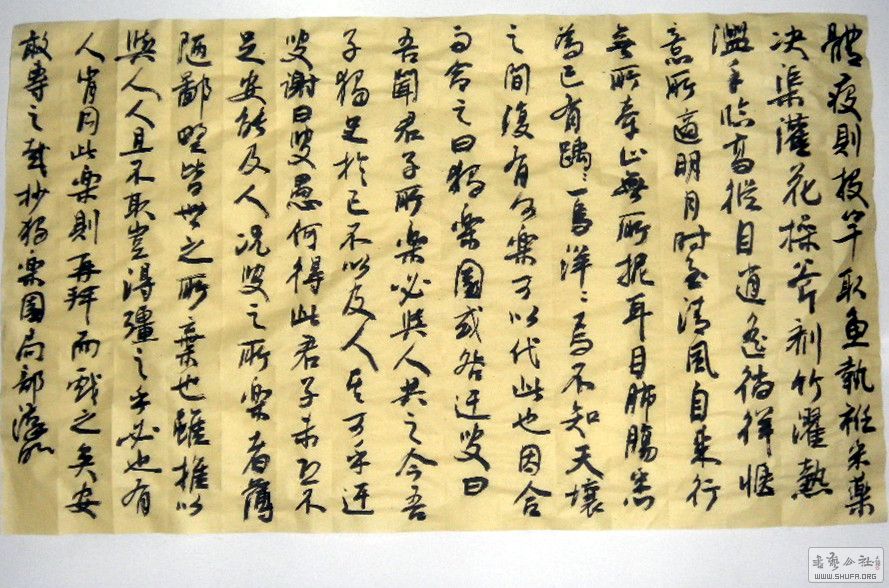 體疲則投竿取魚執衽采藥
决渠灌花操斧剖竹濯熱
盥手臨高縱目逍遙徜徉惟
意所適明月時至清風自來行
無所牽止無所柅耳目肺腸悉
為己有踽〻焉洋〻焉不知天壤
之間復有何樂可以代此也因合
而命之曰獨樂園或咎迂叟曰
吾聞君子所樂必與人共之今吾
子獨足於己不以及人其可乎迂
叟謝曰叟愚何得比君子恐不
足安能及人況叟之所樂者薄
陋鄙野皆世之所棄也雖推以
與人人且不取豈得彊之乎必也有
人肯同此樂則再拜而獻之矣安
敢專之哉抄獨樂園局部
書藝公社
WWW.SHUFA.ORG